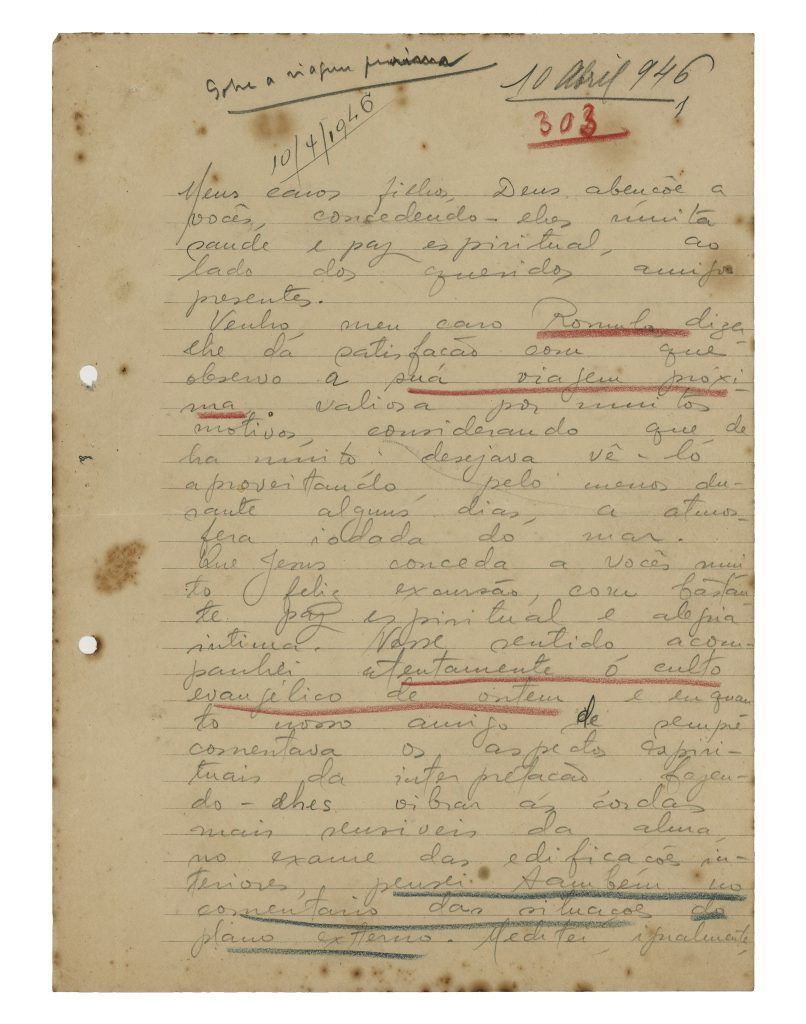 Sobre a viagem próxima
10 Abril 946
1
303
10/4/1946
Meus caros filhos, Deus abençôe a
vocês, concedendo-lhes muita
saude e paz espiritual, ao
lado dos queridos amigos
presentes.
Venho, meu caro Romulo dizer
lhe da satisfação com que
observo a sua viagem próxi-
ma, valiosa por muitos
motivos, considerando que de
ha muito desejava vê-lo
aproveitando, pelo menos du-
rante alguns dias, a atmos-
fera iodada do mar.
Que Jesus conceda a vocês mui
to feliz excursão, com bastan
te paz espiritual e alegria
intima. Nesse sentido acom-
panhei atentamente o culto
evangélico de ontem e enquan
to nosso amigo de sempre
comentava os aspectos espiri-
tuais da interpretação fazen-
do-lhes vibrar as cordas
mais sensiveis da alma,
no exame das edificações in-
teriores, pensei tambem no
comentario das situações do
plano externo. Meditei, igualmente,